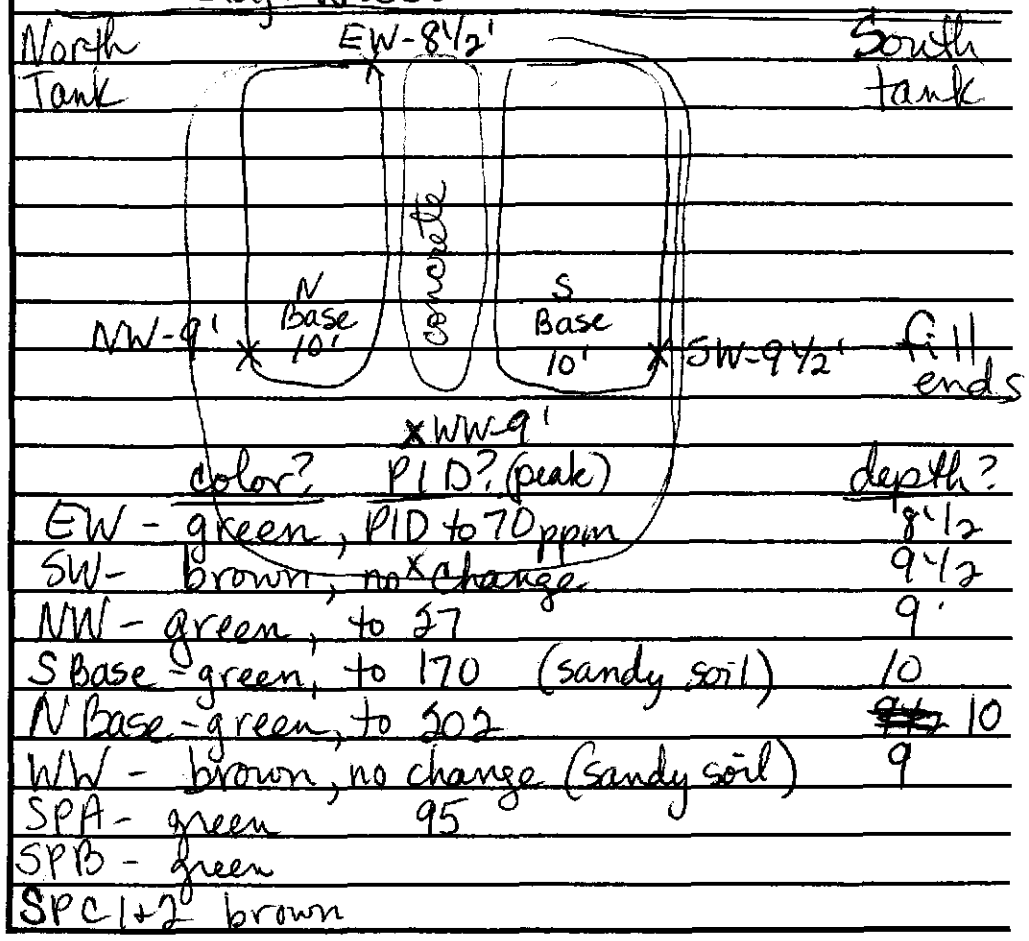 North EW-8 1/2' South
Tank tank
concrete
N S
Base Base
10' 10'
NW-9' SW-9 1/2' fill
ends
x WW-9'
color? PID? (peak) depth?
EW - green, PID to 70 ppm 8 1/2
SW- brown, no change 9 1/2
NW - green, to 27 9
S Base - green, to 170 (sandy soil) 10
N Base - green, to 202 10
WW - brown, no change (sandy soil) 9
SPA - green 95
SPB - green
SPC 1+2 brown